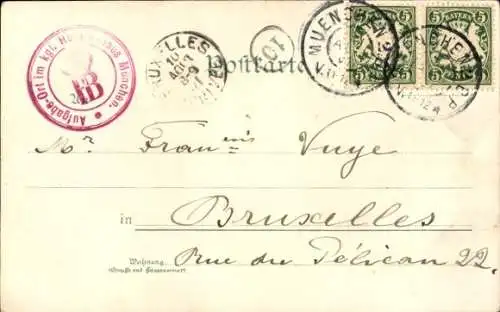 Aufgabe-Ort im kgl. Hofbräuhaus München.
HB
BRUXELLES
101
Postkarte
MUENCHEN
BAYERN
5 5
5 5
Mr Franⁿⁱˢ Vuye
in Bruxelles
Wohnung
(Straße und Hausnummer)
Rue du Pélican 22.